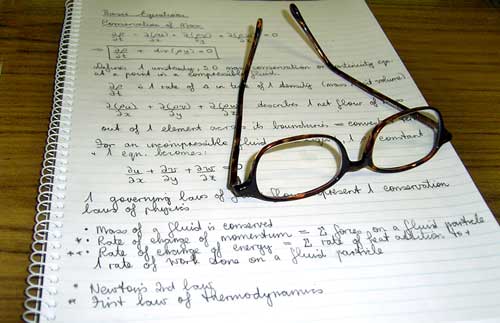 Basic Equations
Conservation of Mass
∂ρ/∂t + ∂(ρu)/∂x + ∂(ρv)/∂y + ∂(ρw)/∂z = 0
⇒ ∂ρ/∂t + div(ρu) = 0
Defines 1 unsteady, 3D mass conservation or continuity eqn.
at a point in a compressible fluid
∂ρ/∂t is 1 rate of Δ in 1 density (mass volume)
∂(ρu)/∂x + ∂(ρv)/∂y + ∂(ρw)/∂z describes 1 net flow of
out of 1 element across its boundaries =
For an incompressible fluid constant
+ 1 eqn. becomes:
∂u/∂x + ∂v/∂y + ∂w/∂z
1 governing laws of flow represent 1 conservation
laws of physics
• Mass of a fluid is conserved
* • Rate of change of momentum = Σ forces on a fluid particle
** • Rate of change of energy = Σ rate of heat addition to +
1 rate of work done on a fluid particle
* Newton's 2nd law
** First law of thermodynamics